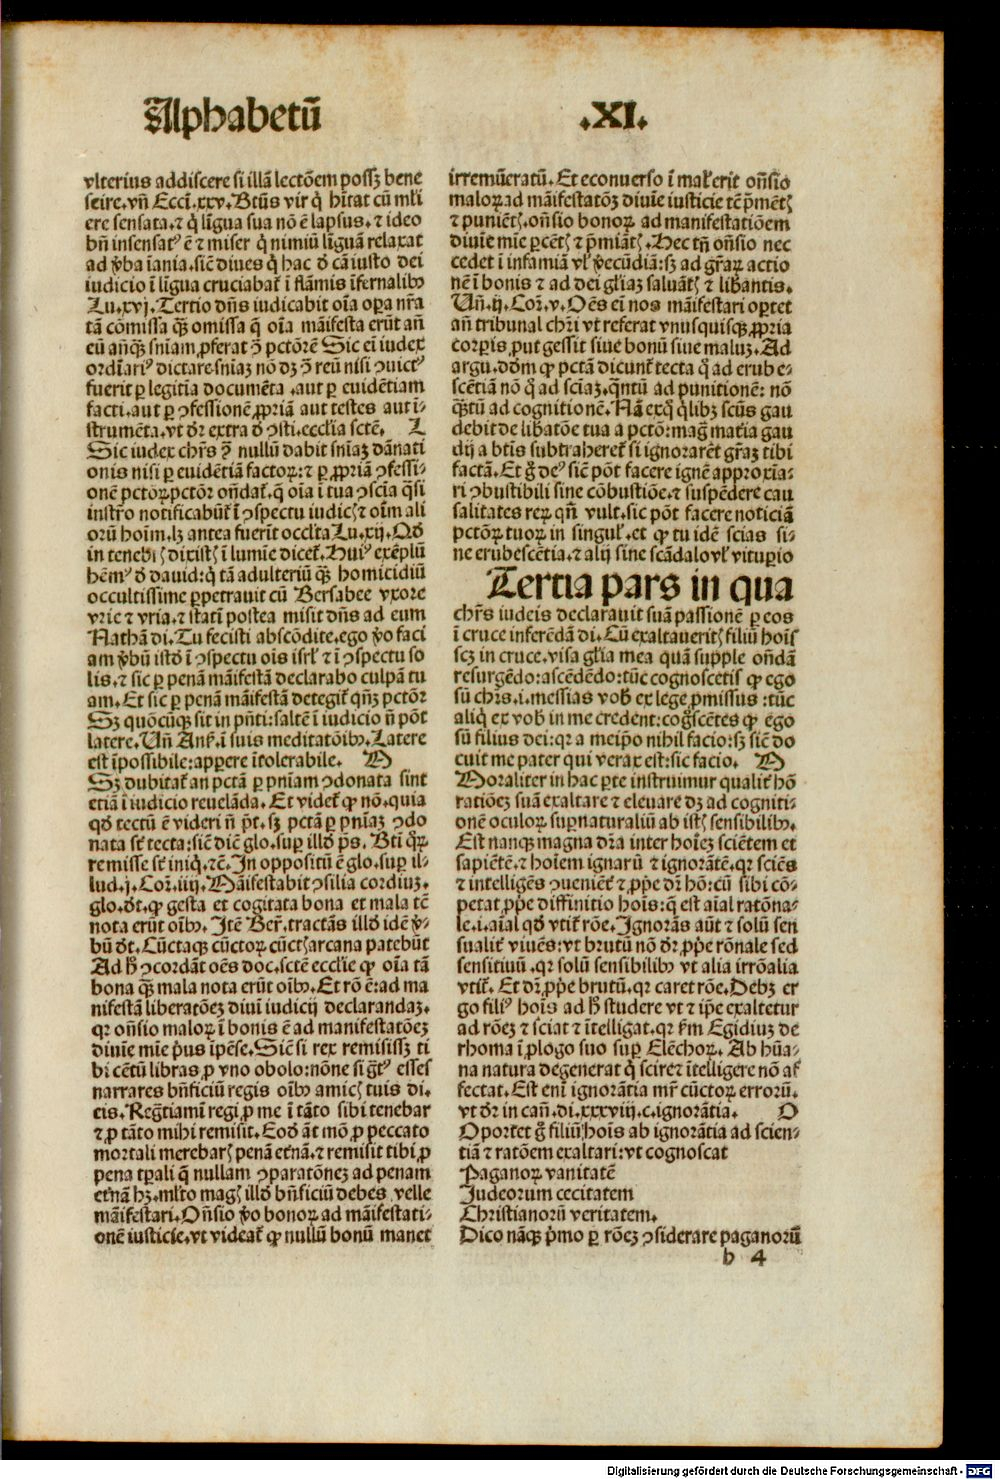 Alphabetū
.XI.
vlterius addiscere si illā lectōem possꝫ bene
scire.vñ Ecci.xxv.Btūs vir q̇ hītat cū mli
ere sensata.⁊ q̇ līgua sua nō ē lapsus.⁊ ideo
bñ insensatꝰ ē ⁊ miser q̇ nimiū līguā relaxat
ad v̄ba īania.sic̄ diues q̇ hac d̄ cā iusto dei
iudicio ī līgua cruciabat᷑ ī flāmis īfernalibꝰ
Lu.xvj.Tertio dñs iudicabit oīa oꝑa nr̄a
tā cōmissa qꝫ̄ omissa q̄ oīa māifesta erūt añ
eū añqꝫ̄ sniam ꝓferat ꝯ̄ pctōrē Sic ei iudex
ordīariꝰ dictare sniaꝫ nō dꝫ ꝯ̄ reū nisi ꝯuictꝰ
fuerit ꝑ legitīa documēta.aut ꝑ euidētiam
facti.aut ꝑ ꝯfessionē ꝓpriā aut testes aut ī-
strumēta.vt dr̄ extra d̄ ꝯsti.ecclīa sctē. L
Sic iudex chr̄s ꝯ̄ nullū dabit sniaꝫ dānati
onis nisi ꝑ euidētiā factoꝝ:⁊ ꝑ ꝓpriā ꝯfessi-
onē pctōꝝ pctōr oñdat᷑.q̄ oīa ī tua ꝯscīa q̄si
instr̄o notificabūt᷑ ī ꝯspectu iudicꝭ ⁊ oīm ali
orū hoīm.lꝫ antea fuerīt occlta Lu.xij.Qd̄
in tenebꝭ dixistꝭ ī lumīe dicet᷑.Huiꝰ exēplū
hēmꝰ d̄ dauid:q̇ tā adulteriū qꝫ̄ homicidiū
occultissime ꝑpetrauit cū Bersabee vxore
vrie ⁊ vria.⁊ statī postea misit dñs ad eum
Nathā di.Tu fecisti abscōdite.ego v̄o faci
am v̄bū istd̄ ī ꝯspectu oīs isrl̄ ⁊ ī ꝯspectu so
lis.⁊ sic ꝑ penā māifestā declarabo culpā tu
am.Et sic ꝑ penā māifestā detegit᷑ qñꝫ pctōr
Sꝫ quōcūqꝫ sit in pñti:saltē ī iudicio ñ pōt
latere.Uñ Anẜ.ī suis meditatōibꝰ.Latere
est īpossibile:apꝑere ītolerabile. M
Sꝫ dubitat᷑ an pctā ꝑ pniam ꝯdonata sint
etiā ī iudicio reuelāda.Et videt᷑ ꝙ nō.quia
qd̄ tectū ē videri ñ pt̄.sꝫ pctā ꝑ pniaꝫ ꝯdo
nata st̄ tecta:sic̄ dic̄ glo.suꝑ illd̄ ps̄.Bti q̄ꝝ
remisse st̄ iniq̇.⁊c̄.In oppositū ē glo.suꝑ il-
lud.j.Cor.iiij.Māifestabit ꝯsilia cordiuꝫ.
glo.dt̄.ꝙ gesta et cogitata bona et mala tē
nota erūt oībꝰ.Itē Ber̄.tractās illd̄ idē v̄-
bū dt̄.Cūctaqꝫ cūctoꝝ cūctꝭ arcana patebūt
Ad hͦ ꝯcordāt oēs doc.sctē ecclīe ꝙ oīa tā
bona qꝫ̄ mala nota erūt oībꝰ.Et rō ē:ad ma
nifestā liberatōeꝫ diuī iudicij declarandaꝫ.
qr oñsio maloꝝ ī bonis ē ad manifestatōeꝫ
diuīe mīe p̄us īpēse.Sic̄ si rex remisissꝫ ti
bi cētū libras ꝓ vno obolo:nōne si gᷓtꝰ esses
narrares bñficiū regis oībꝰ amicꝭ tuis di.
cis.Regr̄tiamī regi ꝓ me ī tāto sibi tenebar
⁊ ꝓ tāto mihi remisit.Eod̄ āt mō ꝓ peccato
mortali merebarꝭ penā etnā.⁊ remisit tibi ꝓ
pena tꝑali q̄ nullam ꝯparatōneꝫ ad penam
etnā hꝫ.mlto magꝭ illd̄ bñficiū debes velle
māifestari.Oñsio v̄o bonoꝝ ad māifestati-
onē iusticie.vt videat᷑ ꝙ nullū bonū manet
irremūeratū.Et econuerso ī mal᷑ erit oñsio
maloꝝ ad māifestatōꝫ diuīe iusticie tē pmētꝭ
⁊ puniētꝭ.oñsio bonoꝝ ad manifestatiōem
diuīe mīe ꝑcētꝭ ⁊ pmiātꝭ.Hec tñ oñsio nec
cedet ī infamiā vl̄ v̄ecūdiā:sꝫ ad gr̄aꝝ actio
nē ī bonis ⁊ ad dei gliaꝫ saluātꝭ ⁊ libantis.
Uñ.ij.Cor̄.v.Oēs ei nos māifestari oꝑtet
añ tribunal chr̄i vt referat vnusquisqꝫ ꝓpria
corꝑis ꝓut gessit siue bonū siue maluꝫ.Ad
argu.dōm ꝙ pctā dicunt᷑ tecta q̊ ad erube-
scētiā nō q̊ ad sciaꝫ.q̄ntū ad punitionē: nō
qꝫ̄tū ad cognitionē.Nā exq̊ q̇libꝫ scūs gau
debit de libatōe tua a pctō:mag̃ materia gau
dij a btīs subtraheret᷑ si ignorarēt gr̄aꝫ tibi
factā.Et g̊ deꝰ sic̄ pōt facere ignē approxīa-
ri ꝯbustibili sine cōbustiōe.⁊ suspēdere cau
salitates reꝝ qñ vult.sic pōt facere noticiā
pctōꝝ tuoꝝ in singulꝭ.et ꝙ tu idē scias si-
ne erubescētia.⁊ alij sine scādalo vl̄ vituꝑio
Tertia pars in qua
chr̄s iudeis declarauit suā passionē ꝑ eos
ī cruce inferēdā di.Cū exaltaueritꝭ filiū hoīs
scꝫ in cruce.visa glīa mea quā supple oñdā
resurgēdo:ascēdēdo:tūc cognoscetis ꝙ ego
sū chr̄s.i.messias vob̄ ex lege ꝓmissus:tūc
aliq̇ ex vob̄ in me credent:cogscētes ꝙ ego
sū filius dei:qr a meip̄o nihil facio:sꝫ sic̄ do
cuit me pater qui verax est:sic facio. N
Moraliter in hac ꝑte instruimur qualit᷑ hō
ratiōeꝫ suā exaltare ⁊ eleuare dꝫ ad cogniti-
onē oculoꝝ suꝑnaturaliū ab istꝭ sensibilibꝰ.
Est nanqꝫ magna dr̄a inter hoīeꝫ sciētem et
sapiētē.⁊ hoīem ignarū ⁊ ignorātē.qr sciēs
⁊ intelligēs ꝯuenient᷑ ⁊ ꝓpe dr̄ hō:cū sibi cō-
petat ꝓpe diffinitio hoīs:q̄ est aīal ratōna-
le.i.aīal qd̄ vtit᷑ rōe.Ignorās aūt ⁊ solū sen
sualit᷑ viuēs:vt brutū nō dr̄.ꝓpe rōnale sed
sensitiuū.qr solū sensibilibꝰ vt alia irrōalia
vtit᷑.Et dr̄ ꝓpe brutū.qr caret rōe.Debꝫ er
go filiꝰ hoīs ad hͦ studere vt ⁊ ip̄e exaltetur
ad rōeꝫ ⁊ sciat ⁊ ītelligat.qr ẜm Egidiuꝫ de
rhoma ī ꝓlogo suo suꝑ Elēchoꝝ.Ab hūa-
na natura degenerat q̇ scire ⁊ ītelligere nō af
fectat.Est eni ignorātia mr̄ cūctoꝝ errorū.
vt dr̄ in can̄.di.xxxviij.c.ignorātia. O
Oportet g̊ filiū hoīs ab ignorātia ad scien-
tiā ⁊ ratōem exaltari:vt cognoscat
Paganoꝝ vanitatē
Iudeorum cecitatem
Christianorū veritatem.
Dico nāqꝫ pmo ꝑ rōeꝫ ꝯsiderare paganorū
b 4
Digitalisierung gefördert durch die Deutsche Forschungsgemeinschaft - DFG